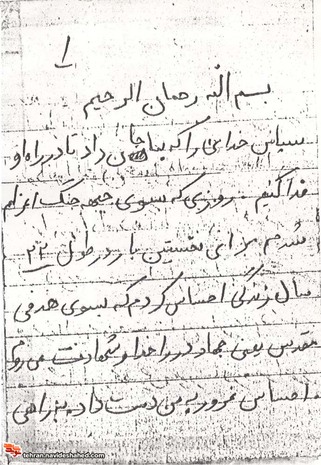 ۱
بسم الله رحمان الرحیم
سپاس خدایی را که بما جان داد تا در راه او
فدا کنیم. روزی که بسوی جبهه جنگ اعزام
شدم برای نخستین بار در طول ۲۲
سال زندگی احساس کردم که بسوی هدفی
مقدس یعنی جهاد در راه خدا و شهادت می روم
احساس غرور به من دست داد به راهی
tehran.navideshahed.com